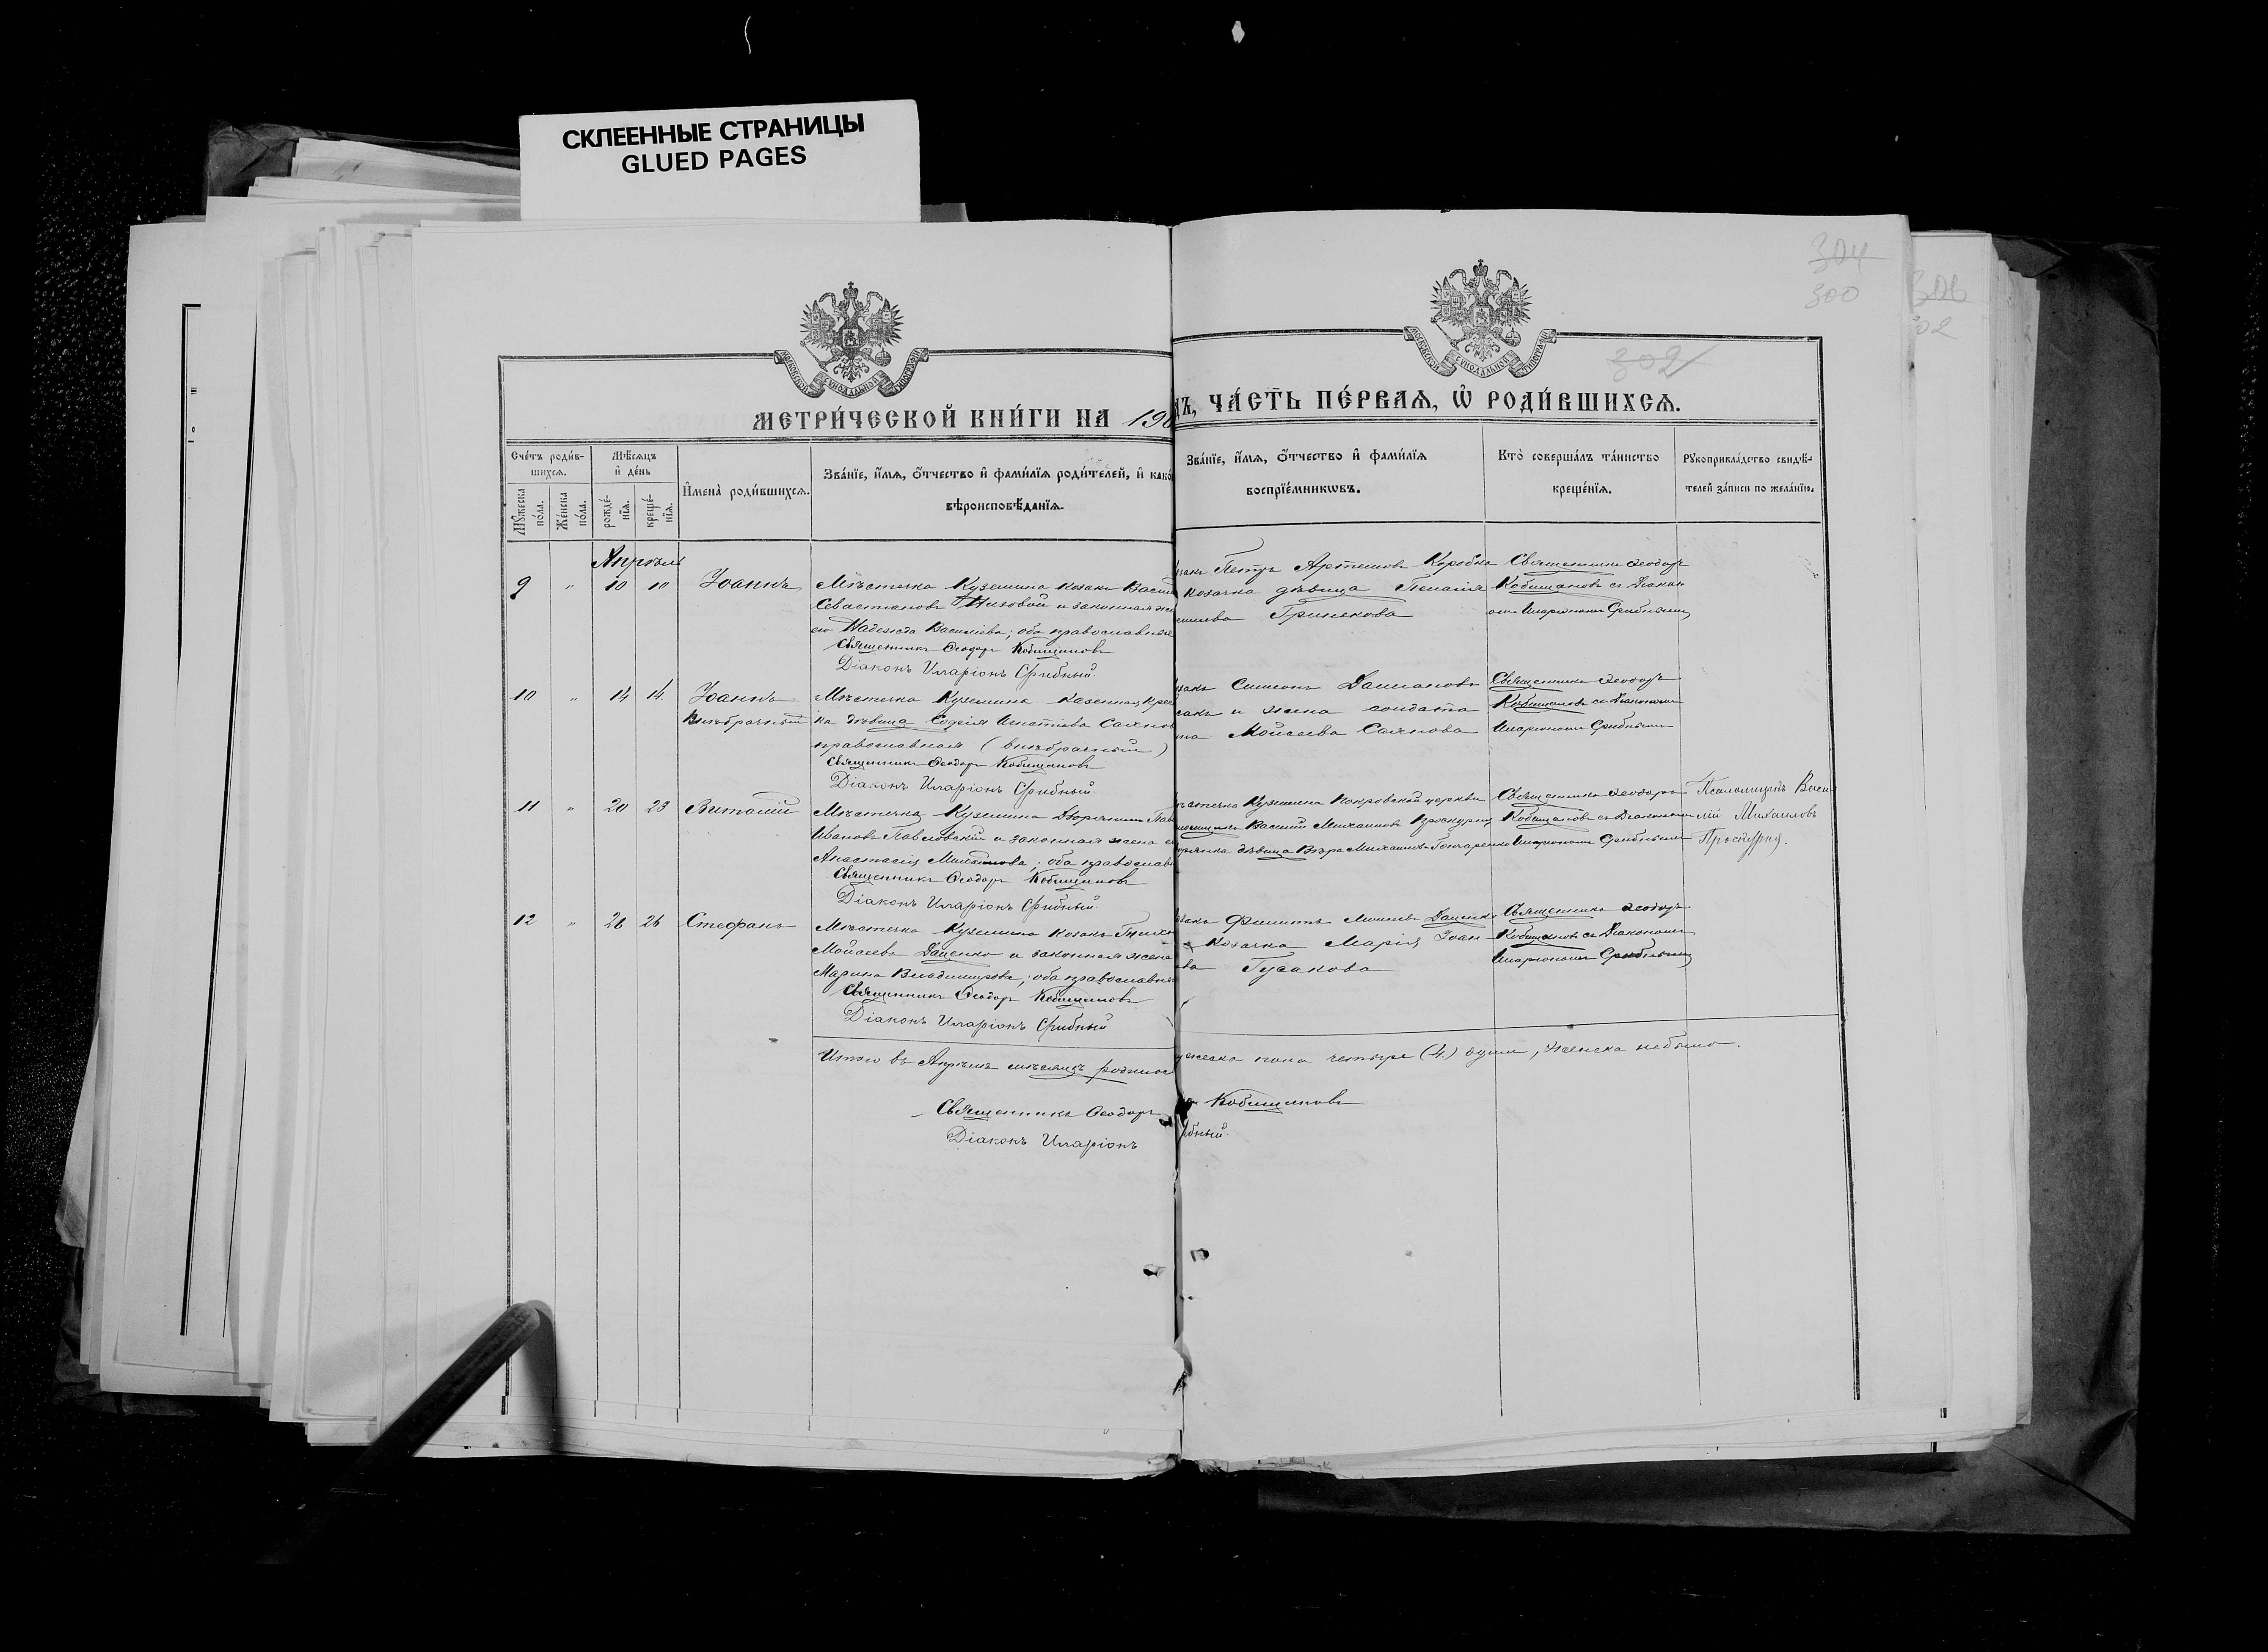 СКЛЕЕННЫЕ СТРАНИЦЫ
GLUED PAGES
304
300
306
302
302
МОСКОВСКОЙ СѴНОДАЛЬНОЙ ТИПОГРАФІИ
МОСКОВСКОЙ СѴНОДАЛЬНОЙ ТИПОГРАФІИ
МЕТРИ́ЧЕСКОЙ КНИ́ГИ НА 190
ДЪ, ЧА́СТЬ ПЕ́РВАЯ, Ѡ҆ РОДИ́ВШИХСЯ.
Сче́тъ роди́в-
шихся.
Мѣ́сяцъ
и҆ де́нь
Му́жеска
по́ла.
Же́нска
по́ла.
рожде́-
нїя.
креще́-
нїя.
И҆мена̀ роди́вшихся.
Зва́нїе, и҆́мя, ѻ҆́тчество и҆ фами́лїя роди́телей, и҆ како́
вѣроисповѣ́данїя.
Зва́нїе, и҆́мя, ѻ҆́тчество и҆ фами́лїя
воспрїе́мникωвъ.
Кто̀ соверша́лъ та́инство
креще́нїя.
Рꙋкоприкла́дство свидѣ́-
телей за́писи по жела́нїю.
Апрѣль
9 " 10 10 Іоаннъ
Мѣстечка Куземина козакъ Васил
Севастіановъ Низовой и законная же
его Надежда Василіева; оба православные
Священникъ Ѳеодоръ Кобищановъ
Діаконъ Иларіонъ Срибный.
закъ Петръ Артемовъ Коробка
козачка дѣвица Пелагія
Гринькова
Священникъ Ѳеодоръ
Кобищановъ съ Діакон
омъ Иларіономъ Срибнымъ
10 " 14 14 Іоаннъ
Внѣбрачный
Мѣстечка Куземина казенная крес
ка дѣвица Софія Игнатіева Саянов
православная (внѣбрачный)
Священникъ Ѳеодоръ Кобищановъ
Діаконъ Иларіонъ Срибный.
закъ Симеонъ Даміановъ
сакъ и жена солдата
на Мойсеева Саянова
Священникъ Ѳеодоръ
Кобищановъ съ Діакономъ
Иларіономъ Срибнымъ
11 " 20 23 Виталій
Мѣстечка Куземина Дворянинъ Пав
Ивановъ Павловскій и законная жена е
Анастасія Михайлова; оба православ
Священникъ Ѳеодоръ Кобищановъ
Діаконъ Иларіонъ Срибный.
ѣстечка Куземина Покровской церкви
ломщикъ Василій Михаиловъ Проскурня
орянка дѣвица Вѣра Михаиловъ Гончаренко
Священникъ Ѳеодоръ
Кобищановъ съ Діакономъ
Иларіономъ Срибнымъ
Псаломщикъ Васи
лій Михаиловъ
Проскурня.
12 " 26 26 Стефанъ
Мѣстечка Куземина козакъ Тихо
Мойсеевъ Даценко и законная жена
Марина Владимірова; оба православны
Священникъ Ѳеодоръ Кобищановъ
Діаконъ Иларіонъ Срибный
закъ Филиппъ Моисеевъ Даценко
и козачка Марія Іоан
ова Гусакова
Священникъ Ѳеодоръ
Кобищановъ съ Діакономъ
Иларіономъ Срибнымъ
Итого въ Апрѣлѣ мѣсяцѣ родилос
ужеска пола четыре (4.) души, женска небыло.
Священникъ Ѳеодоръ Кобищановъ
Діаконъ Иларіонъ
ибный